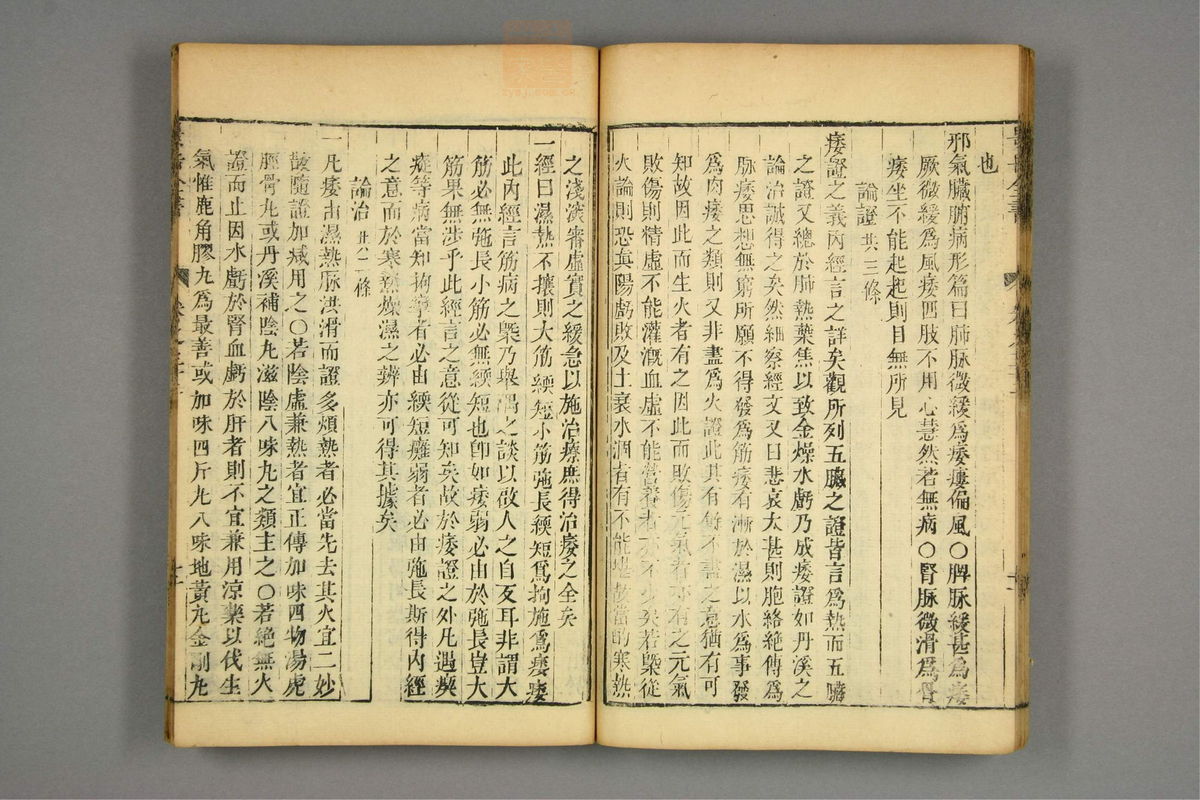 也
邪氣臟腑病形篇曰肺脉微緩爲痿瘻偏風○脾脉緩甚爲痿
厥微緩爲風痿四肢不用心慧然若無病○腎脉微滑爲骨
痿坐不能起起則目無所見
論證共三條
痿證之義內經言之詳矣觀所列五臟之證皆言爲熱而五臟
之證又總於肺熱葉焦以致金燥水虧乃成痿證如丹溪之
論治誠得之矣然細察經文又曰悲哀太甚則胞絡絶傳爲
脉痿思想無窮所願不得發爲筋痿有漸於濕以水爲事發
爲肉痿之類則又非盡爲火證此其有餘不盡之意猶有可
知故因此而生火者有之因此而敗傷元氣者亦有之元氣
敗傷則精虛不能灌漑血虛不能營養者亦不少矣若槩從
火論則恐眞陽虧敗及土衰水涸者有不能堪故當的寒熱
之淺深審虛實之緩急以施治療庶得治痿之全矣
一經曰濕熱不攘則大筋緛短小筋弛長緛短爲拘弛長爲痿
此內經言筋病之槩乃舉隅之談以啟人之自反耳非謂大
筋必無弛長小筋必無緛短也卽如痿弱必由於弛長豈大
筋果無涉乎此經言之意從可知矣故於痿證之外凡遇㾓
瘲等病當知拘攣者必由緛短癱弱者必由弛長斯得內經
之意而於寒熱燥濕之辨亦可得其據矣
論治共二條
一凡痿由濕熱脉洪滑而證多煩熱者必當先去其火宜二妙
散隨證加减用之○若陰虛兼熱者宜正傳加味四物湯虎
脛骨丸或丹溪補陰丸滋陰八味丸之類主之○若絶無火
證而止因水虧於腎血虧於肝者則不宜兼用涼藥以伐生
氣惟鹿角膠丸爲最善或加味四斤丸八味地黃丸金剛丸